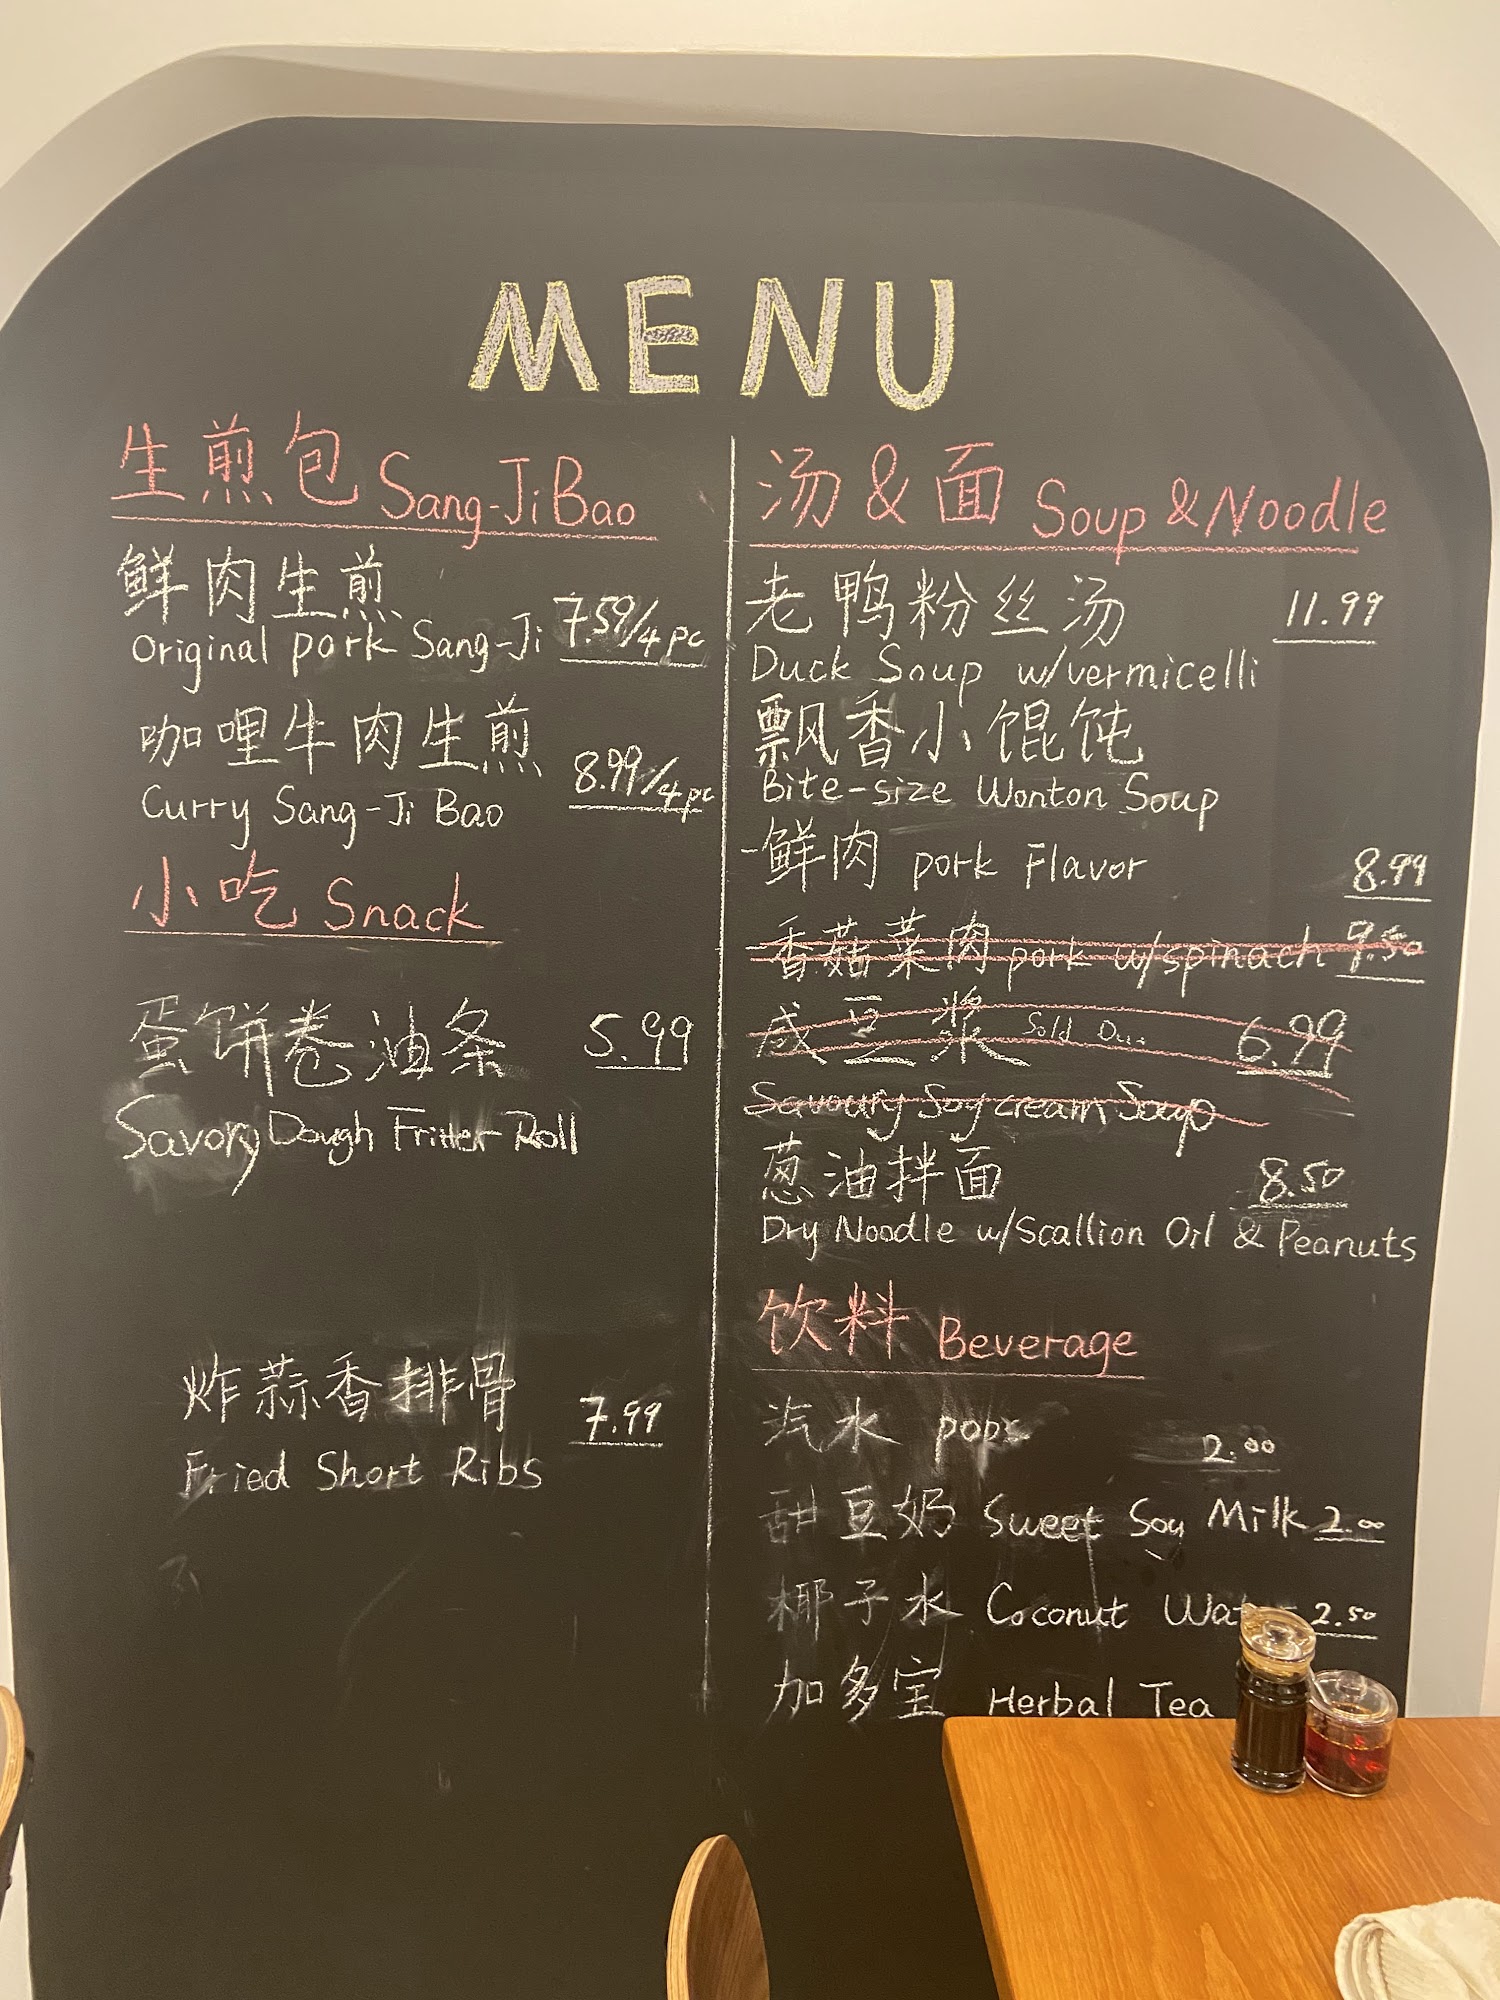 MENU
生煎包 Sang-Ji Bao
鲜肉生煎
Original pork Sang-Ji 7.59/4pc
咖哩牛肉生煎
Curry Sang-Ji Bao 8.99/4pc
小吃 Snack
蛋饼卷油条 5.99
Savory Dough Fritter Roll
炸蒜香排骨 7.99
Fried Short Ribs
汤&面 Soup & Noodle
老鸭粉丝汤 11.99
Duck Soup w/vermicelli
飘香小馄饨
Bite-size Wonton Soup
-鲜肉 pork Flavor 8.99
-香菇菜肉 pork w/spinach 9.50
咸豆浆 Sold Out 6.99
Savoury Soy cream Soup
葱油拌面 8.50
Dry Noodle w/Scallion Oil & Peanuts
饮料 Beverage
汽水 pops 2.00
甜豆奶 Sweet Soy Milk 2.00
椰子水 Coconut 2.50
加多宝 Herbal Tea